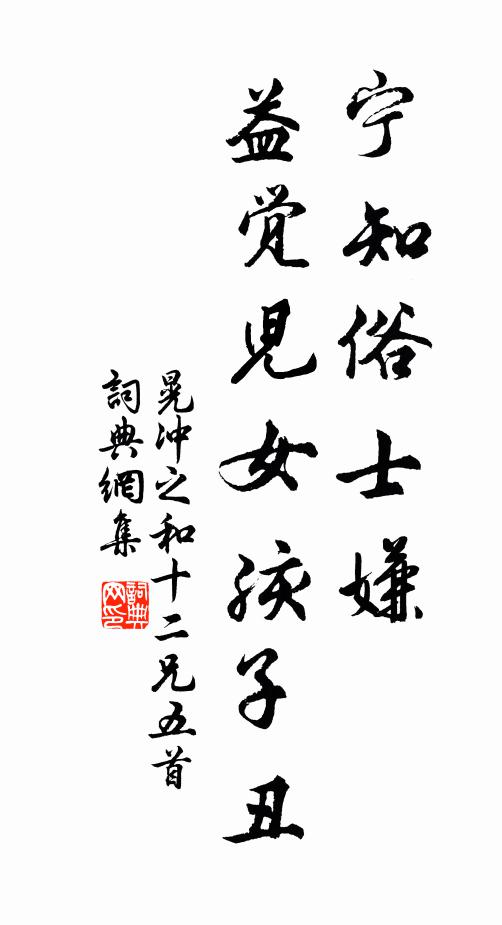 宁知俗士嫌
益觉児女孩子丑
晁冲之和十二兄五首
詞典網集
詞典网印